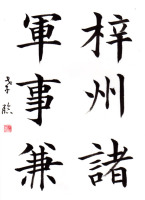 梓州諸
軍事兼